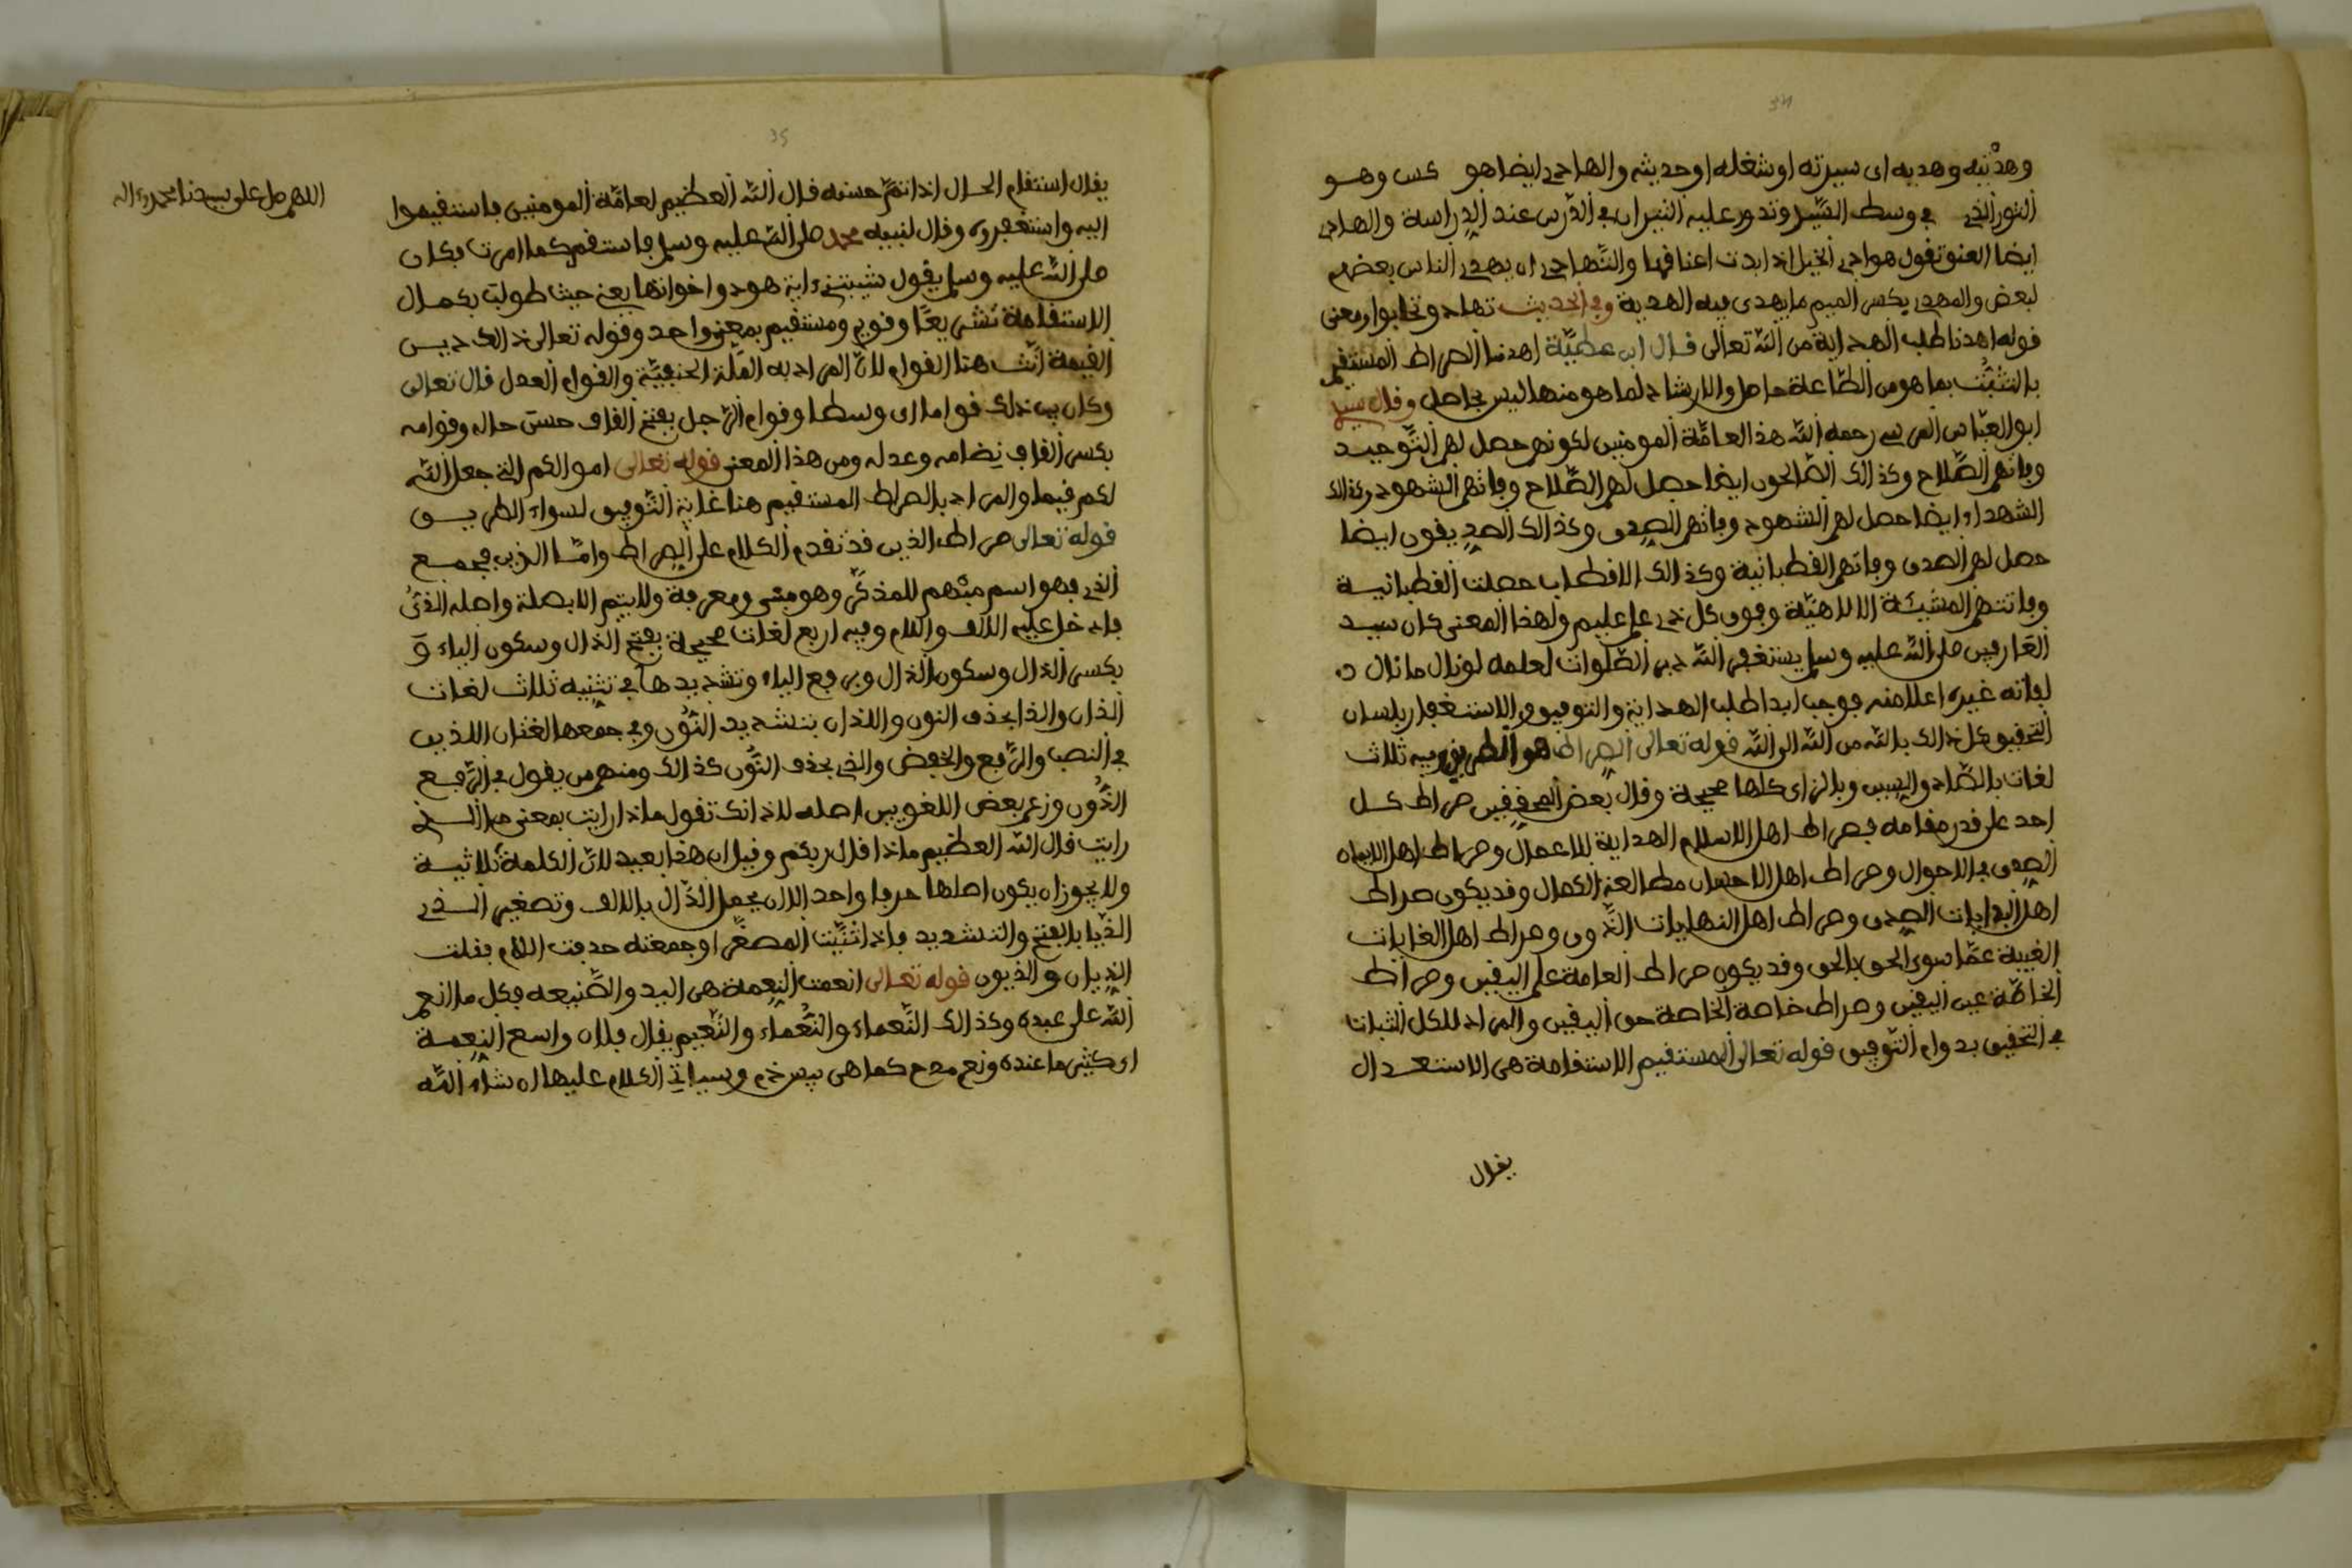 34
وهدْيَه وهديه اى سيرته او شغله او حديثه والهادى ايضا هو كس وهو
الثور الذى في وسط البيدر وتدور عليه الثيران في الدّرس عند الدراسة والهادى
ايضا العنق تقول هوادى الخيل اذا بدت اعناقها والتّهادى ان يهدى الناس بعضهم
لبعض والمهدى بكسر الميم ما يهدى فيه الهدية وفى الحديث تهادوا تحابوا ومعنى
قوله اهدنا طلب الهداية من اللّه تعالى قال ابن عطيّة اهدنا الصراط المستقيم
بالتثبّت بما هو من الطّاعة حاصل والارشاد لما هو منها ليس بحاصل وقال سيد
ابو العبّاس المرسى رحمه اللّه هذا لعامّة المومنين لكونهم حصل لهم التّوحيد
وفاتهم الصّلاح وكذالك الصّالحون ايضا حصل لهم الصّلاح وفاتهم الشهود وكذالك
الشهداء ايضا حصل لهم الشهود وفاتهم الصِدق وكذالك الصدِيقون ايضا
حصل لهم الصدق وفاتهم القطبانية وكذالك الاقطاب حصلت القطبانية
وفاتتهم المشيئة الالاهيّة وفوق كل ذى علم عليم ولهذا المعنى كان سيد
العارفين صلى اللّه عليه وسلم يستغفر اللّه دبر الصّلوات لعلمه لو نال ما نال
لفاته غيره اعلا منه فوجب ابدا طلب الهداية والتوفيق والاستغفار بلسان
التحقيق كل ذالك باللّه من اللّه الى اللّه قوله تعالى الصِراط هو الطريق وفيه ثلاث
لغات بالصّاد والسين وبالزاى كلها صحيحة وقال بعض المحققين صراط كل
احد على قدر مقامه فصراط اهل الاسلام الهداية للاعمال وصراط اهل الايمان
الصِدق في الاحوال وصراط اهل الاحسان مطالعة الكمال وقد يكون صراط
اهل البدايات الصِدق وصراط اهل النهايات الذّوق وصراط اهل الغايات
الغيبة عمّا سوى الحق بالحق وقد يكون صراط العامة علم اليقين وصراط
الخاصّة عين اليقين وصراط خاصة الخاصة حق اليقين والمراد للكل الثبات
في التحقيق بدوام التّوفيق قوله تعالى المستقيم الاستقامة هى الاستعدال
يقال
35
اللهم صل على سيدنا محمد وءاله
يقال استقام الحال اذا تمّ حسنه قال اللّه العظيم لعامّة المومنين فاستقيموا
اليه واستغفروه وقال لنبيه محمد صلى اللّه عليه وسلم فاستقم كما امرت فكان
صلى اللّه عليه وسلم يقول شيبتنى ءاية هود واخواتها يعنى حيث طولب بكمال
الاستقامة تشريعًا وقويم ومستقيم بمعنى واحد وقوله تعالى ذالك دين
القيمة انّث هنا القوام لانّ المراد به الملّة الحنيفيّة والقوام العدل قال تعالى
وكان بين ذلك قواما اى وسطا وقوام الرّجل بفتح القاف حسن حاله وقوامه
بكسر القاف نِضامه وعدله ومن هذا المعنى قوله تعالى اموالكم التى جعل اللّه
لكم قيما والمراد بالصراط المستقيم هنا غاية التّوفيق لسواء الطريق
قوله تعالى صراط الذين قد تقدم الكلام على الصراط وامّا الذين فجمع
الذى فهو اسم مبْهم للمذكّر وهو مبنى ومعرفة ولا يتم الا بصلة واصله الذى
فادخل عليه الالف واللام وفيه اربع لغات صحيحة بفتح الذال وسكون الياء و
بكسر الذال وسكون الذال وبرفع الياء وتشديدها في تثنيه ثلاث لغات
الذان والذا بحذف النون واللذان بتشديد النّون وفى جمعها لغتان اللذين
في النصب والرّفع والخفض والذى بحذف النّون كذالك ومنهم من يقول في الرّفع
الذُون وزعم بعض اللغويين اصله لاذا انك تقول ماذا رايت بمعنى ما الذى
رايت قال اللّه العظيم ماذا قال ربكم وقيل ان هذا بعيد لانّ الكلمة ثلاثية
ولا يجوز ان يكون اصلها حرفا واحدا الان يجعل الذّال بالالف وتصغير الذى
الذّيا بالفتح والتشديد فاذا ثنّيت المصغّر او جمعته حذفت اللام فقلت
الذيان والذيون قوله تعالى انعمت النعمة هى اليد والصّنيعه فكل ما انعم
اللّه على عبده وكذالك النّعماء والنُعماء والنّعيم يقال فلان واسع النعمة
اى كثير ما عنده ونعم مدح كما هى بيس ذم وسياتى الكلام عليها ان شاء اللّه